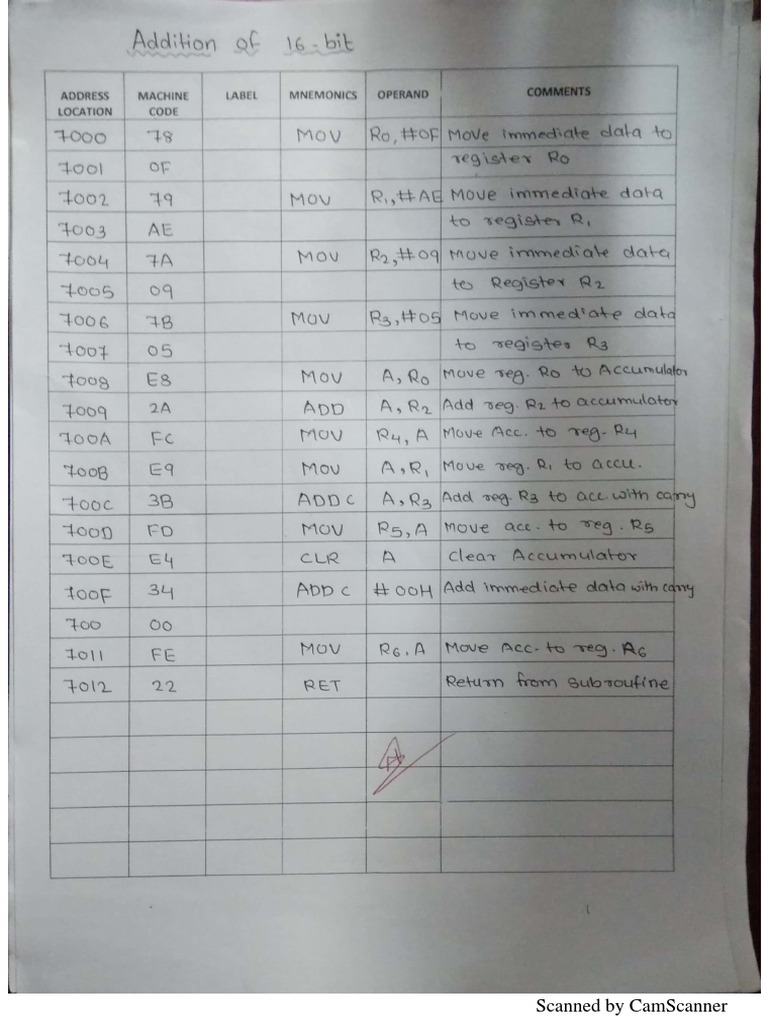 Addition of 16-bit
ADDRESS LOCATION MACHINE CODE LABEL MNEMONICS OPERAND COMMENTS
7000 78 MOV R0, #0F Move immediate data to
7001 0F register R0
7002 79 MOV R1, #AE Move immediate data
7003 AE to register R1
7004 7A MOV R2, #09 Move immediate data
7005 09 to Register R2
7006 7B MOV R3, #05 Move immediate data
7007 05 to register R3
7008 E8 MOV A, R0 Move reg. R0 to Accumulator
7009 2A ADD A, R2 Add reg. R2 to accumulator
700A FC MOV R4, A Move Acc. to reg. R4
700B E9 MOV A, R1 Move reg. R1 to accu.
700C 3B ADDC A, R3 Add reg. R3 to acc. with carry
700D FD MOV R5, A Move acc. to reg. R5
700E E4 CLR A Clear Accumulator
700F 34 ADDC #00H Add immediate data with carry
700 00
7011 FE MOV R6, A Move Acc. to reg. R6
7012 22 RET Return from subroutine
1
Scanned by CamScanner